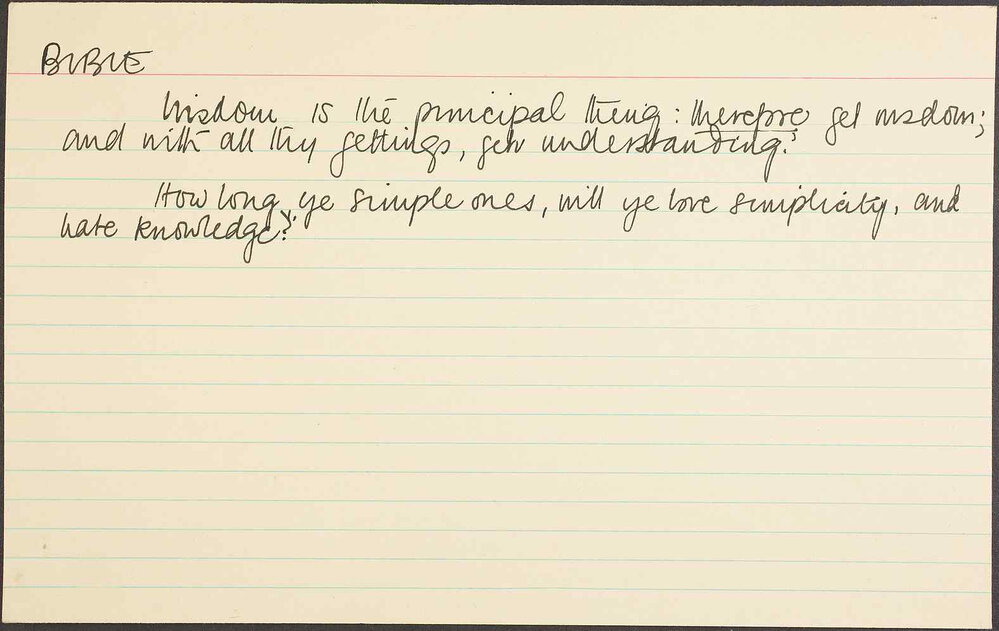 BIBLE
Wisdom is the principal thing: therefore get wisdom;
and with all thy gettings, get understanding.
How long, ye simple ones, will ye love simplicity, and
hate knowledge?